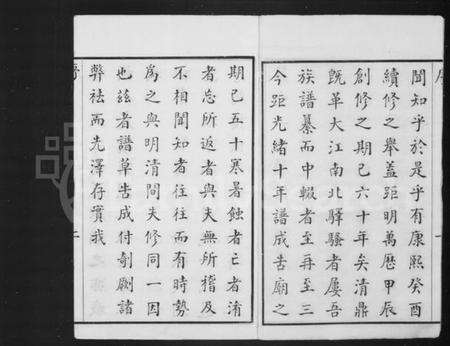 聞知乎於是乎有康熙癸酉
續修之舉蓋距明萬曆甲辰
創修之期已六十年矣清鼎
既革大江南北驛騷者屢吾
族譜纂而中輟者至再至三
今距光緒十年譜成告廟之
期已五十寒暑蝕者亡者淆
者忘所返者與夫無所稽及
不相聞知者往往而有時勢
為之與明清間夫修同一因
也茲者譜草告成付剞劂諸
弊袪而先澤存實我